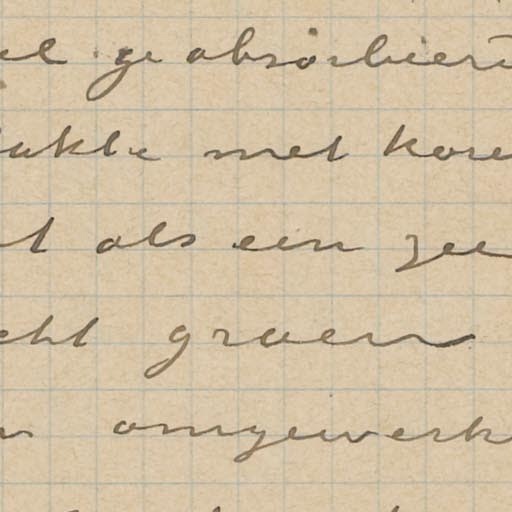 el geabsorbeert
lakte met kore
t als een zee
cht groen
n omgewerk